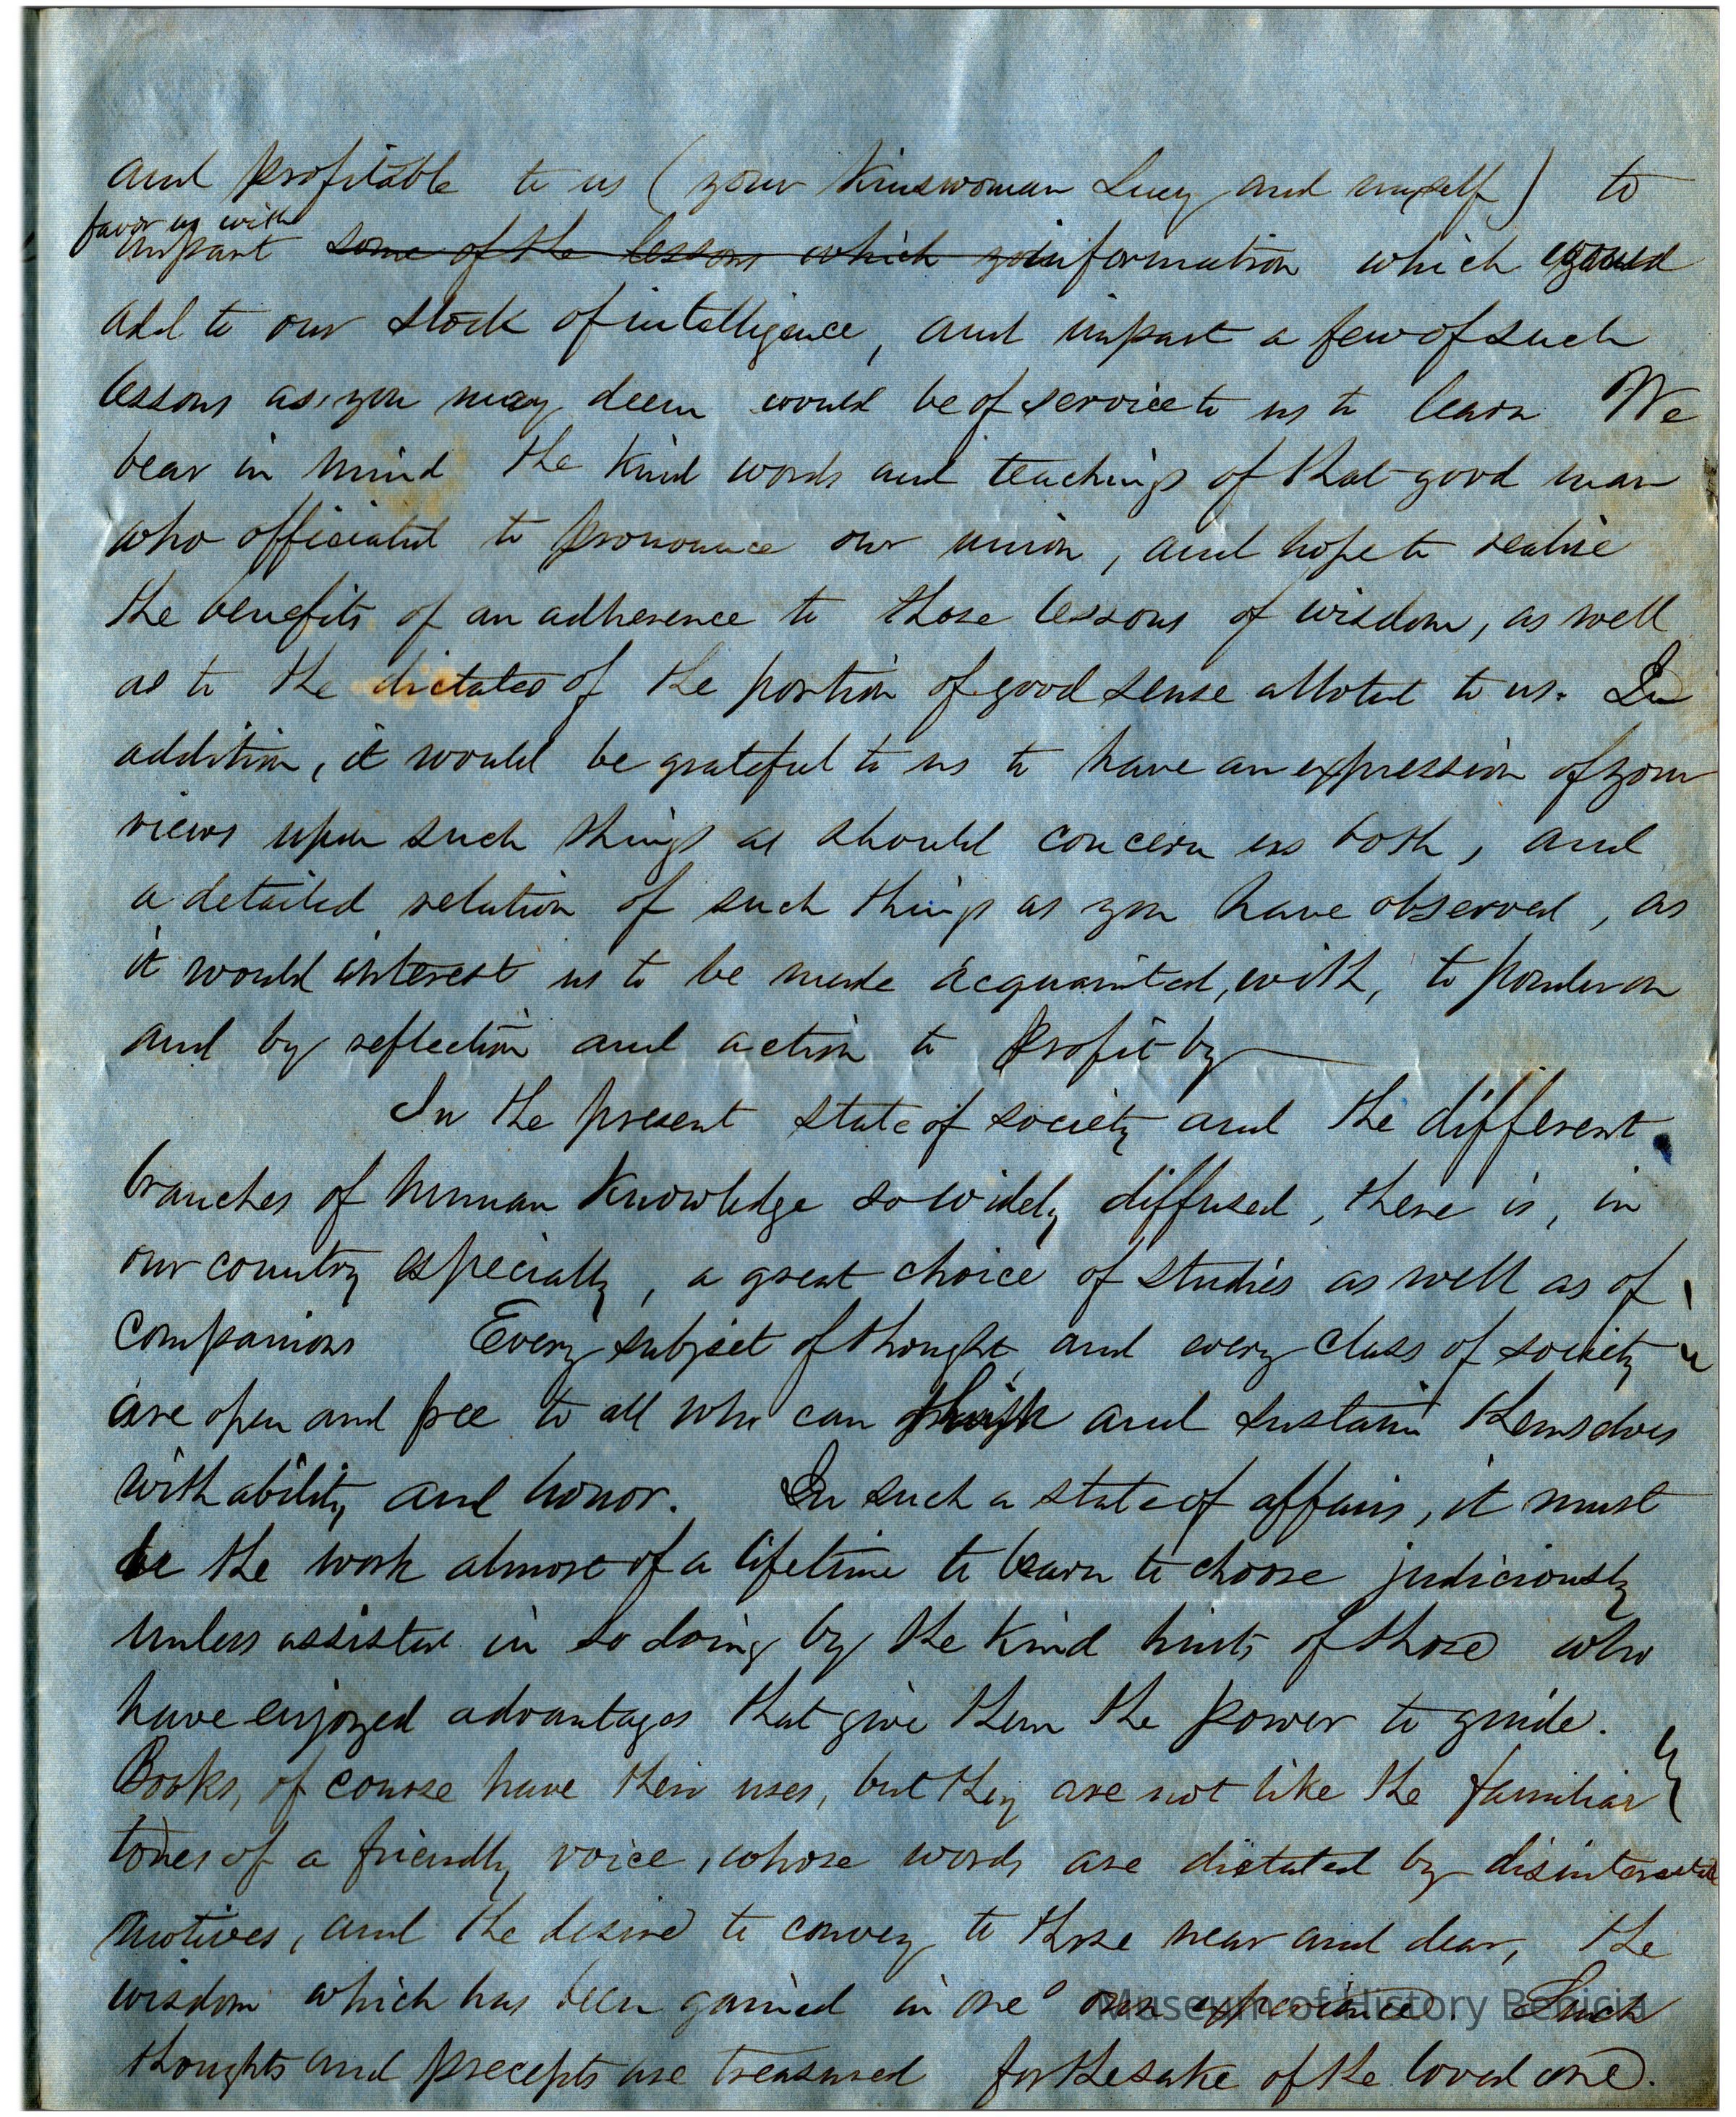 and profitable to us (your Kinswoman Lucy and myself) to
favor us with
impart some of the lessons which yo information which would
add to our stock of intelligence, and impart a few of such
lessons as you may deem would be of service to us to learn We
bear in mind the kind words and teachings of that good man
who officiated to pronounce our union, and hope to realise
the benefits of an adherence to those lessons of wisdom, as well
as to the dictates of the portion of good sense alloted to us. In
addition, it would be grateful to us to have an expression of your
views upon such things as should concern us both, and
a detailed relation of such things as you have observed, as
it would interest us to be made acquainted, with, to ponder on
and by reflection and action to profit by
In the present state of society and the different
branches of human Knowledge so widely diffused, there is, in
our country especially, a great choice of studies as well as of
companions Every subject of thought and every class of society
are open and free to all who can think and sustain themselves
with ability and honor. In such a state of affairs, it must
be the work almost of a lifetime to learn to choose judiciously
unless assisted in so doing by the kind hints of those who
have enjoyed advantages that give them the power to guide.
Books, of course have their uses, but they are not like the familiar
tones of a friendly voice, whose words are dictated by disinterested
motives, and the desire to convey to those near and dear, the
wisdom which has been gained in one's own experience. Such
thoughts and precepts are treasured for the sake of the loved one.
Museum of History Benicia